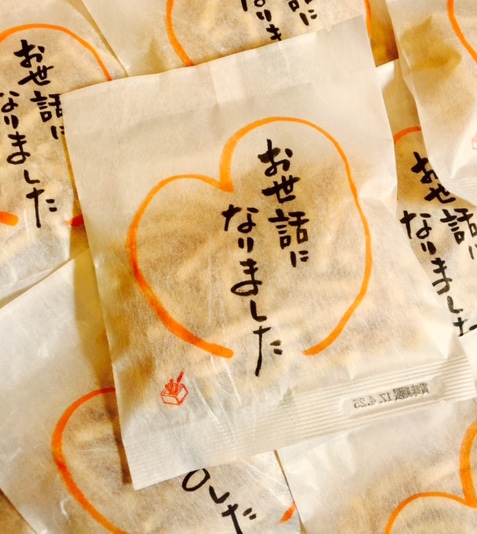 お世話に
なりました
賞味期限 17.4.25
お世話に
なりました
お世話に
なりました
に
した